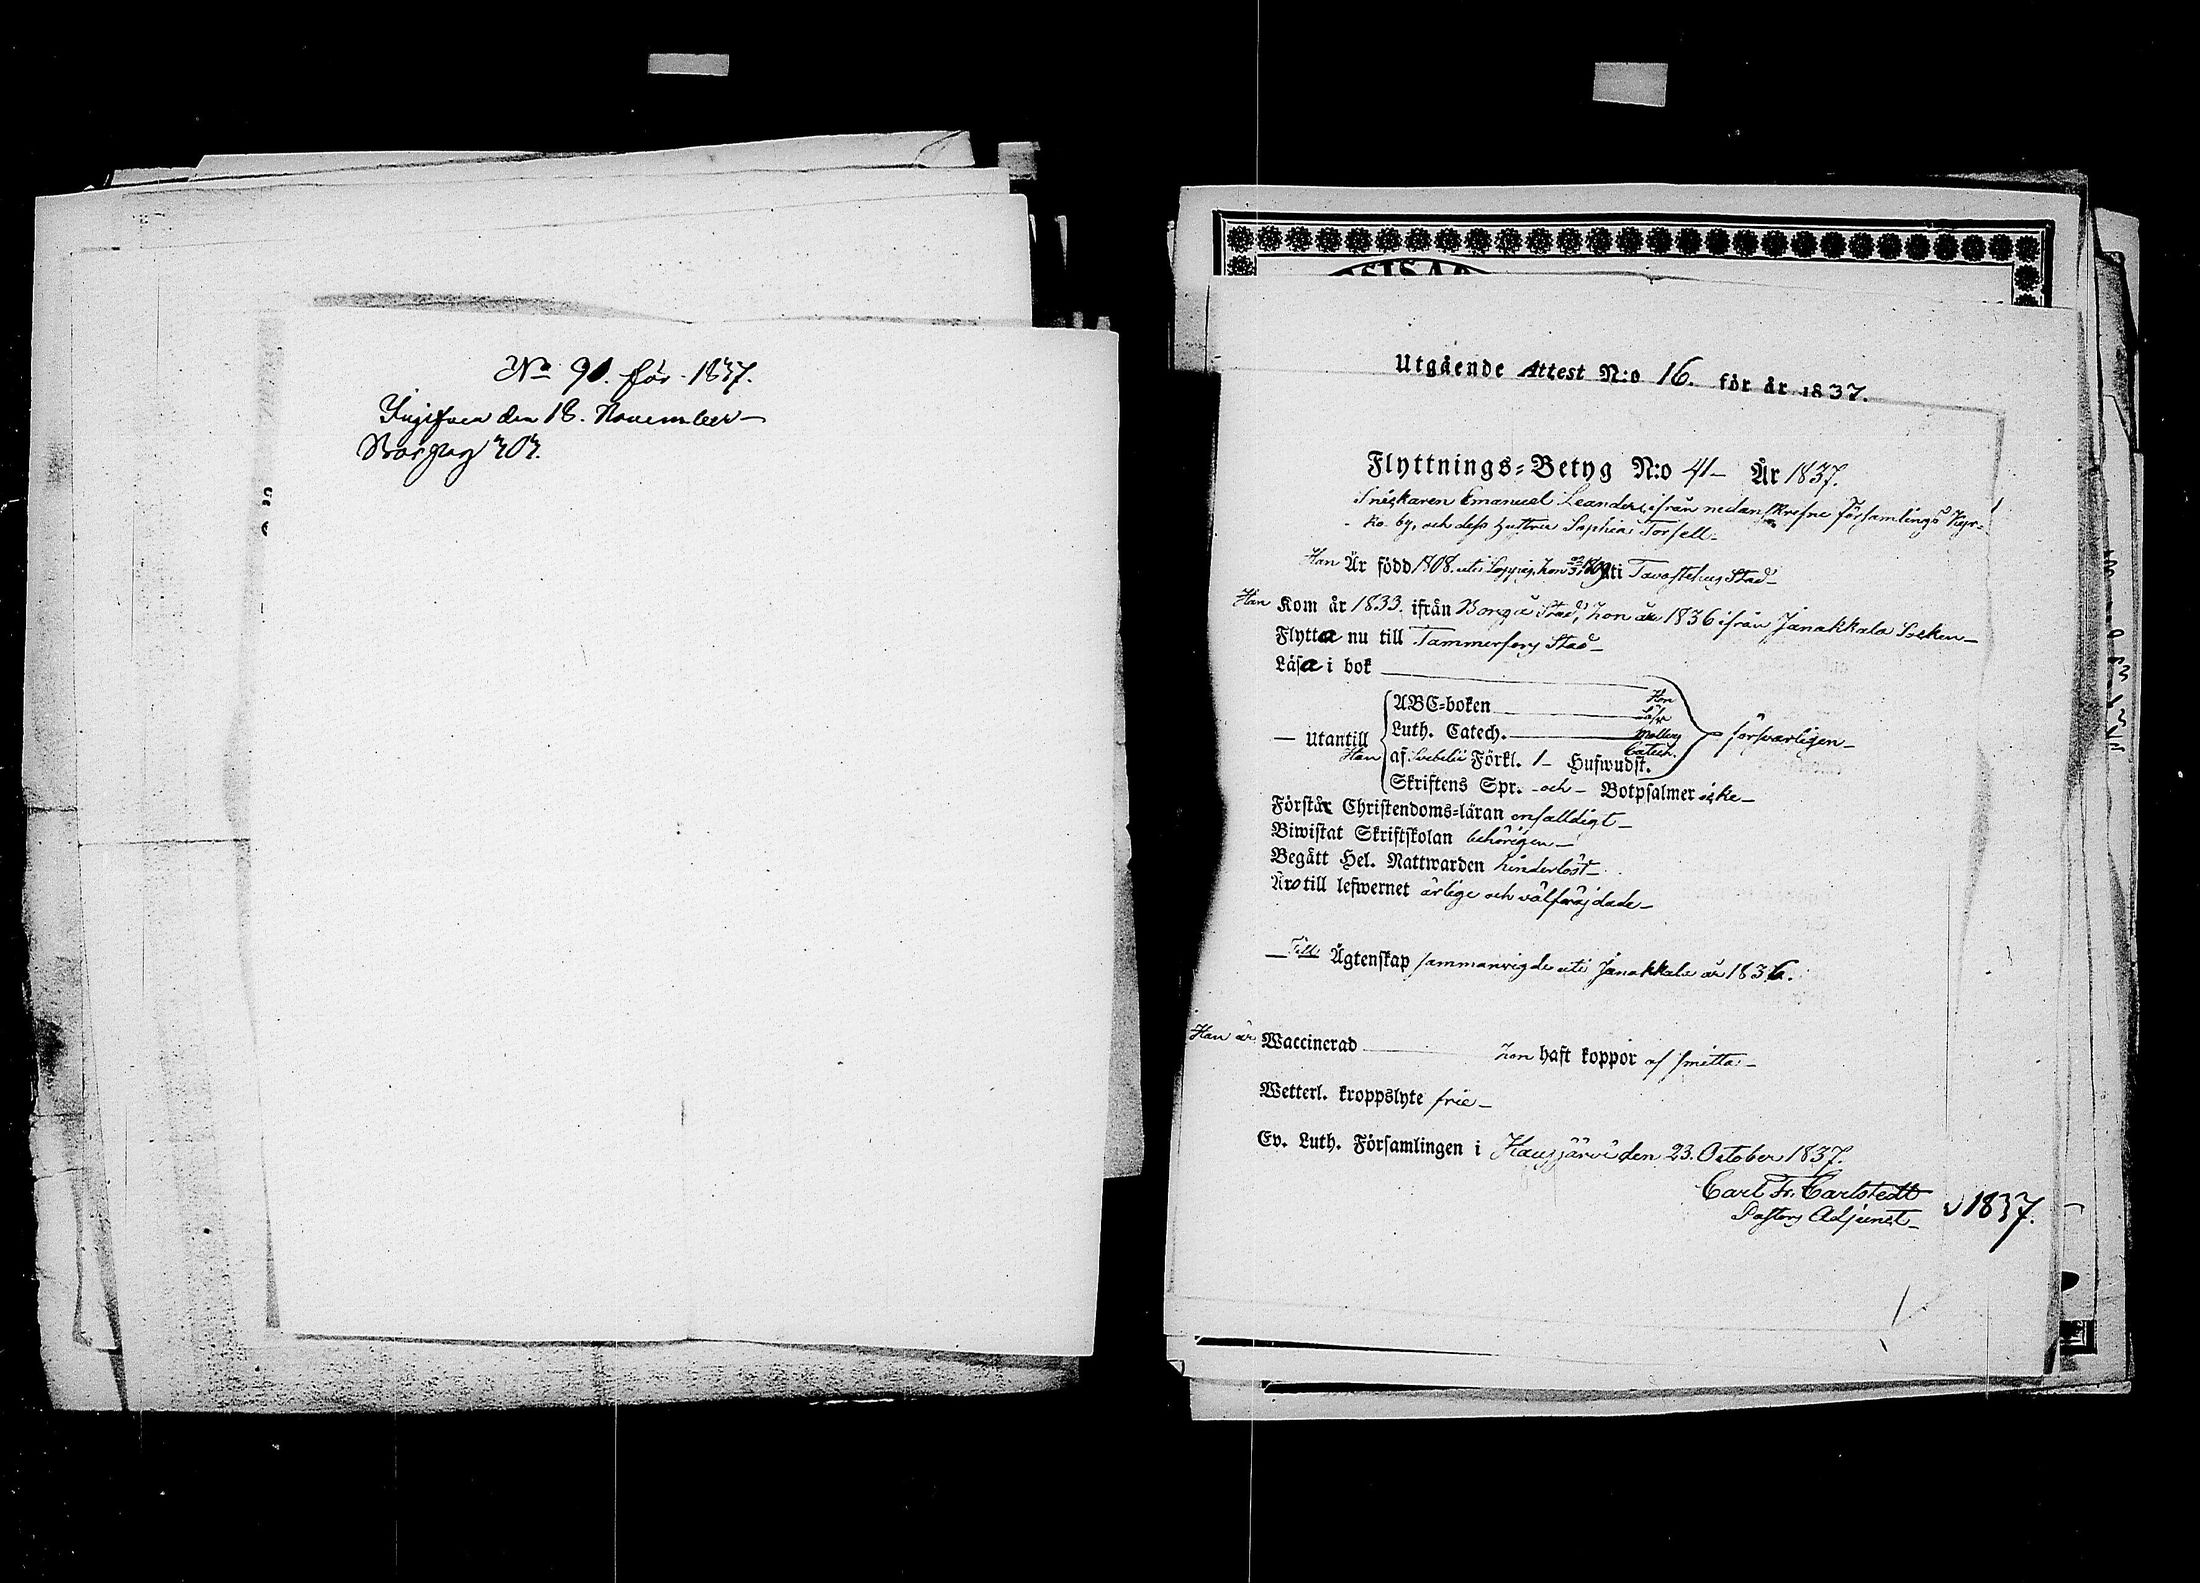 No 90. för 1837.
Ingifven den 18. November
pag 707.
Utgående Attest N:o 16. för år 1837.
Flyttnings-Betyg N:o 41 År 1837.
Snickaren Emanuel Leander, ifrån nedanskrefne Församlings Kyr-
ko by, och dess hustru Sophia Torsell
Han Är född 1808 uti Loppis, hon 1809 uti Tavastehus Stad
Han Kom år 1833 ifrån Borgå Stad, hon år 1836 ifrån Janakkala Socken
Flytta nu till Tammerfors Stad
Läsa i bok
Utantill
ABC-boken
Luth. Catech.
Hon
Läser
Mallbergs
Catech.
försvarligen
Han af Svebelii Förkl. 1 Hufwudst.
Skriftens Spr. och Botpsalmer icke
Förstå Christendoms-läran enfalldigt
Biwistat Skriftskolan behörigen
Begått Hel. Nattwarden hinderlöst
Äro till lefwernet ärlige och välfräjdade
Till Ägtenskap sammanvigde uti Janakkala år 1836.
Han är Waccinerad hon haft koppor af smitta
Wetterl. kroppslyte frie
Ev. Luth. Församlingen i Hausjärvi den 23. October 1837.
Carl Fr. Carlstedt
Pastors Adjunct
1837.